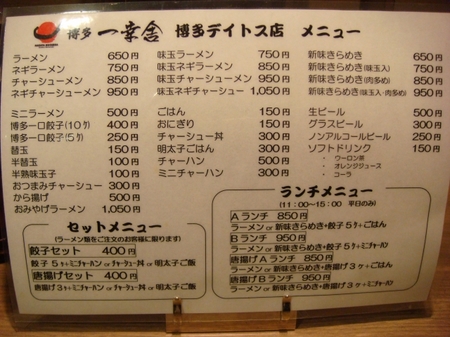 博多 一幸舎 博多デイトス店 メニュー
ラーメン 650円
ネギラーメン 750円
チャーシューメン 850円
ネギチャーシューメン 950円
味玉ラーメン 750円
味玉ネギラーメン 850円
味玉チャーシューメン 950円
味玉ネギチャーシュー 1,050円
新味きらめき 650円
新味きらめき(味玉入) 750円
新味きらめき(肉多め) 850円
新味きらめき(味玉入・肉多め) 950円
ミニラーメン 500円
博多一口餃子(10ケ) 400円
博多一口餃子(5ケ) 250円
替玉 150円
半替玉 100円
半熟味玉子 100円
おつまみチャーシュー 300円
から揚げ 500円
おみやげラーメン 1,050円
ごはん 150円
おにぎり 150円
チャーシュー丼 300円
明太子ごはん 300円
チャーハン 500円
ミニチャーハン 300円
生ビール 500円
グラスビール 300円
ノンアルコールビール 250円
ソフトドリンク 150円
・ウーロン茶
・オレンジジュース
・コーラ
セットメニュー
(ラーメン類をご注文のお客様に限ります)
餃子セット 400円
餃子5ケ+ミニチャーハン or チャーシュー丼 or 明太子ご飯
唐揚げセット 400円
唐揚げ3ケ+ミニチャーハン or チャーシュー丼 or 明太子ご飯
ランチメニュー
(11:00~15:00 平日のみ)
Aランチ 850円
ラーメン or 新味きらめき+餃子5ケ+ごはん
Bランチ 950円
ラーメン or 新味きらめき+餃子5ケ+ミニチャーハン
唐揚げAランチ 850円
ラーメン or 新味きらめき+唐揚げ3ケ+ごはん
唐揚げBランチ 950円
ラーメン or 新味きらめき+唐揚げ3ケ+ミニチャーハン